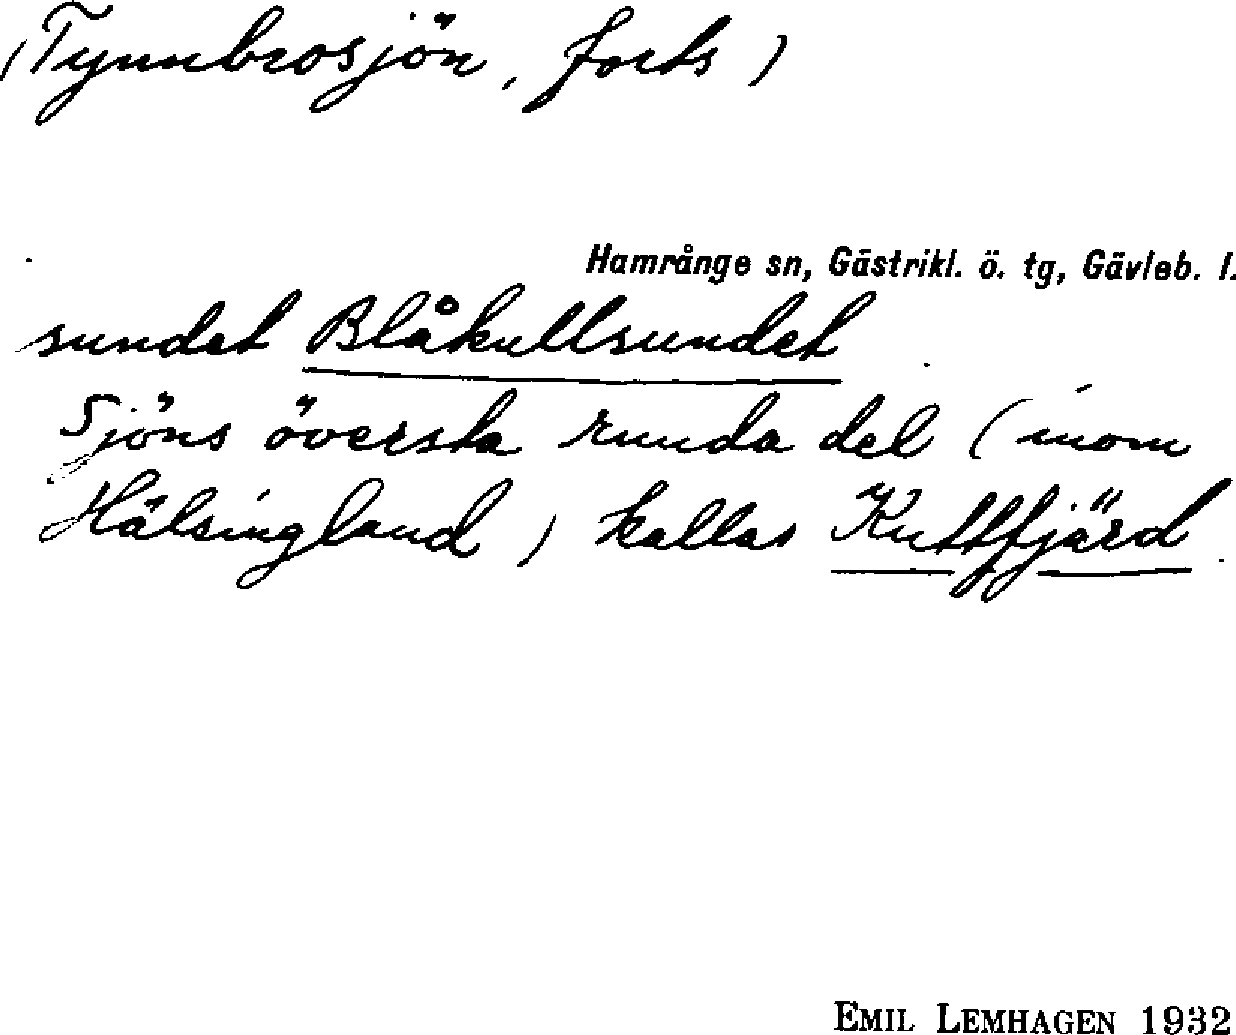 (Tynnbrosjön, forts)
Hamrånge sn, Gästrikl. ö. tg, Gävleb. l.
sundet Blåkullsundet.
Sjöns översta runda del (inom
Hälsingland) kallas Kuttfjärd.
EMIL LEMHAGEN 1932